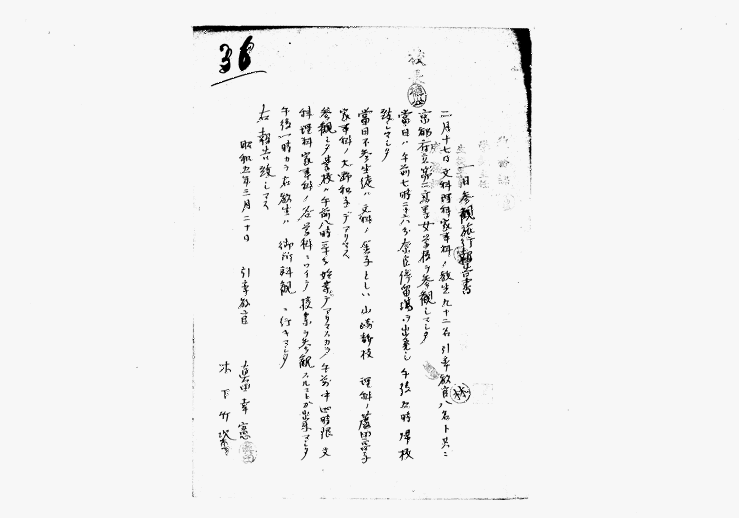 36
校長
一日参観旅行報告書
二月十七日文科理科家事科ノ教生九十二名引率教官八名ト共ニ
京都府立第二高等女学校ヲ参観シマシタ
當日ハ午前七時二十八分奈良停留場ヲ出発シ午後 時帰校
致シマシタ
當日不参生徒ハ文科ノ金子としい山崎静枝 理科ノ
家事科ノ大野和子デアリマス
参観シタ学校ハ午前八時 始業デアリマスカラ午前中四時限文
科理科家事科ノ各学科ニツイテ授業ヲ参観スルコトガ出来マシタ
午後一時カラ右教生ハ 御所拝観ニ行キマシタ
右報告致シマス
昭和五年二月二十日 引率教官
真田幸憲
木下竹次